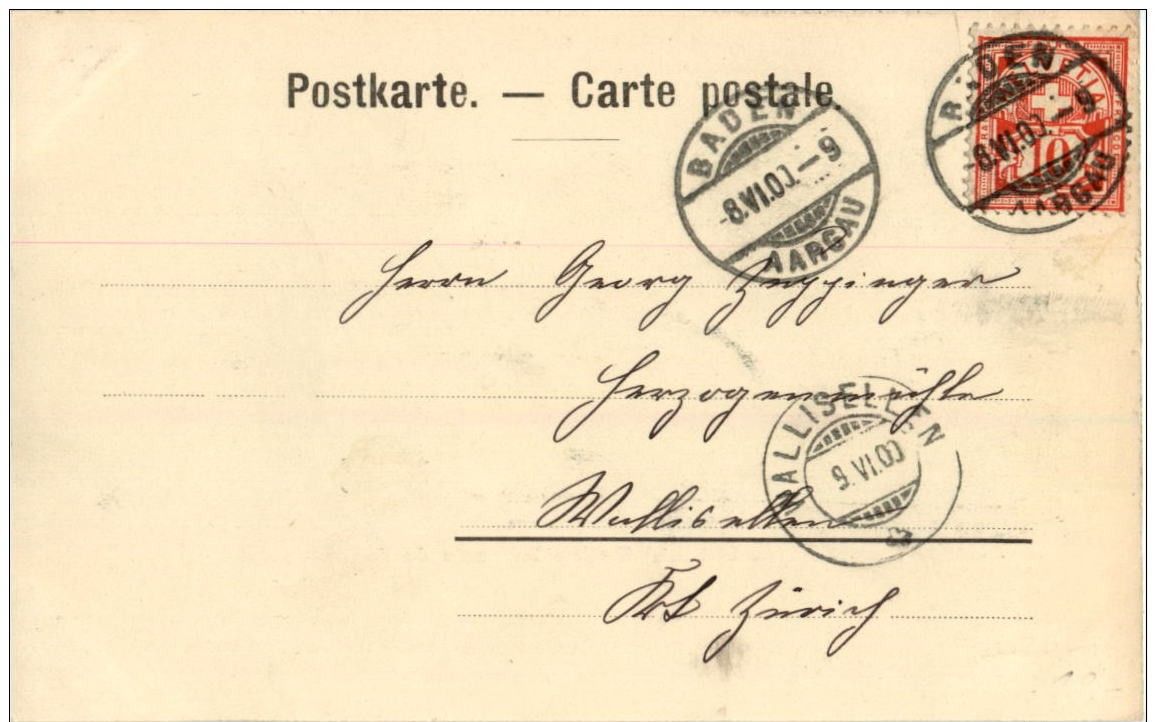 Postkarte. — Carte postale.
BADEN
-8.VI.00.-9
AARGAU
BADEN
-8.VI.00.-9
AARGAU
HELVETIA
10
Herrn Georg Zuppinger
Herzogenmühle
WALLISELLEN
9.VI.00
Wallisellen
Kt Zürich